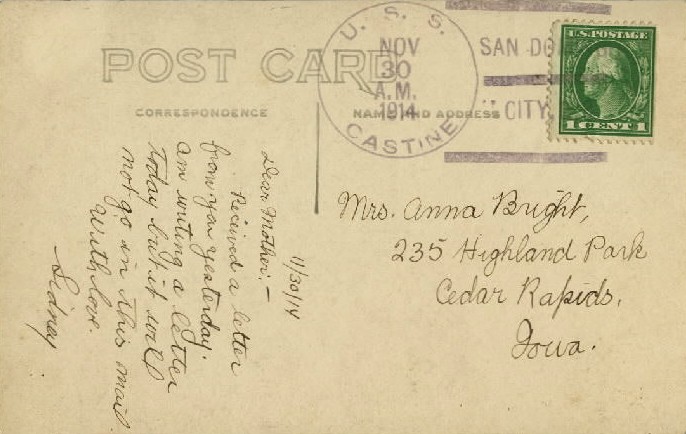 POST CARD
CORRESPONDENCE
NAME AND ADDRESS
U. S. S.
NOV
30
A.M.
1914
CASTINE
SAN DO
CITY
U.S. POSTAGE
1 CENT 1
11/30/14
Dear Mother:—
Received a letter
from you yesterday.
am writing a letter
today but it will
not go in this mail.
With love.
Sidney
Mrs. Anna Bright,
235 Highland Park
Cedar Rapids,
Iowa.